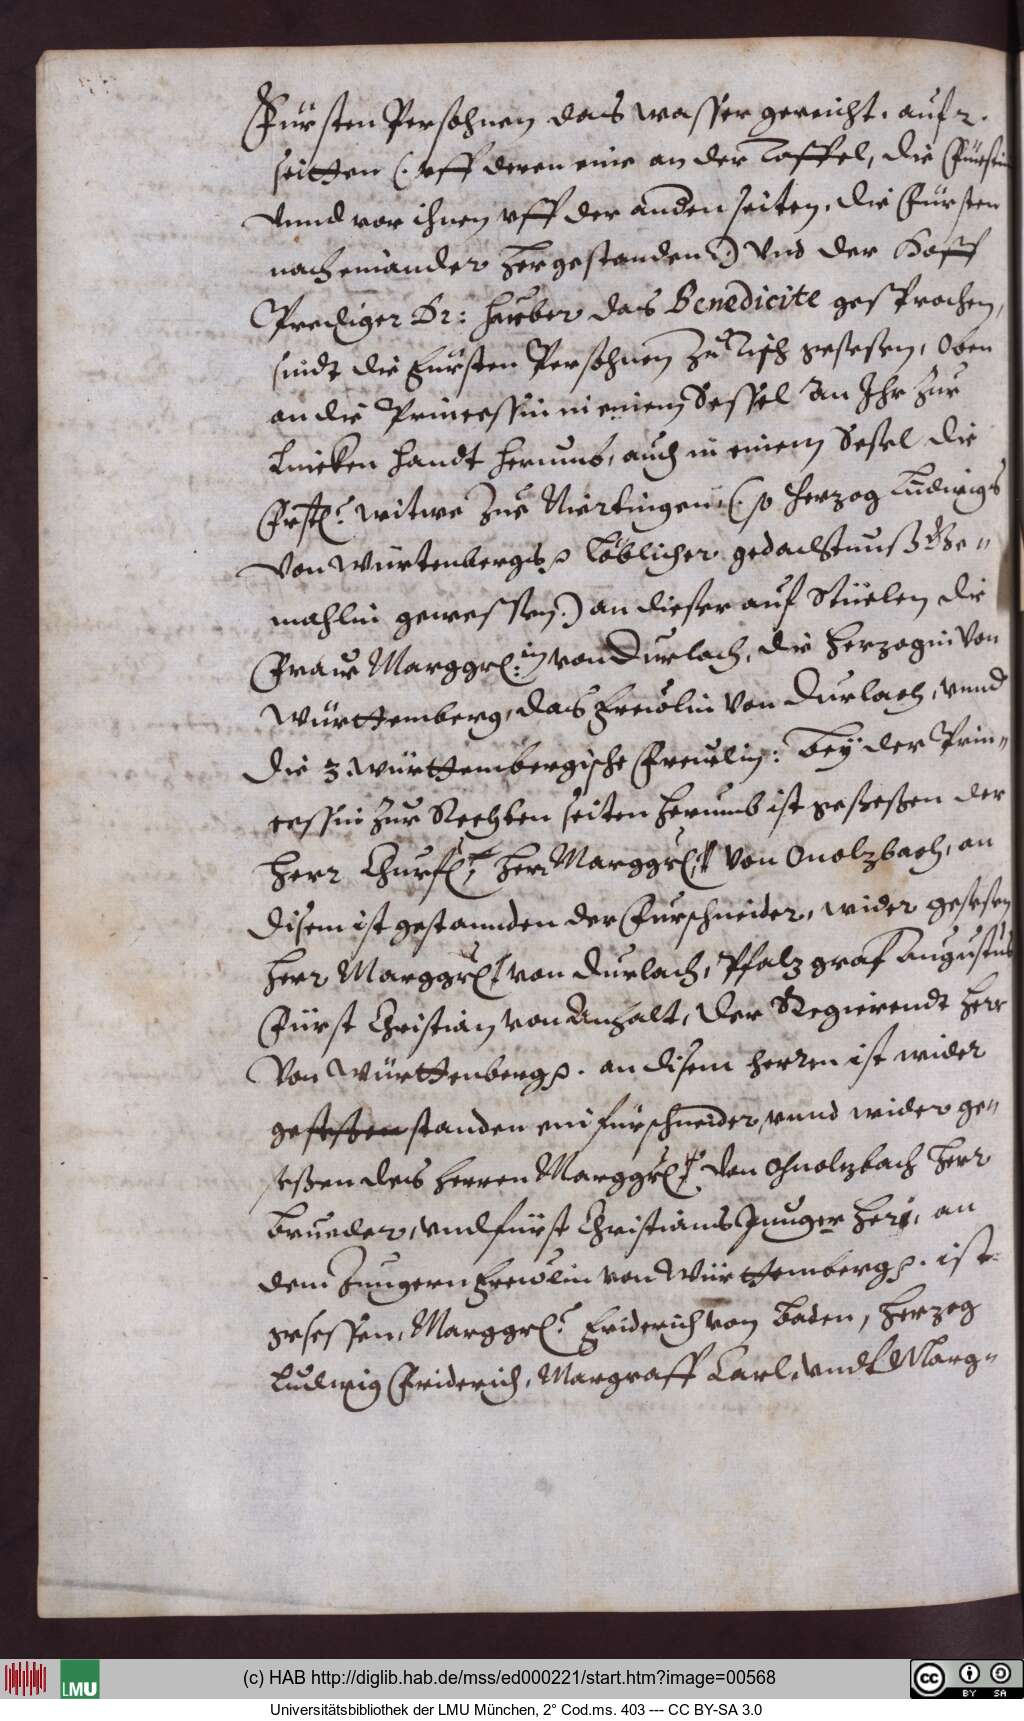 Fürsten Persohnen das wasser gereicht, auf 2.
seitten (. vff deren eine an der Taffel, die Fürstin
vnnd vor ihnen vff der andern seiten, die Fürsten
nach einander hergestanden .) vnd der Hoff
Prediger Dr: Hauber das Benedicite gesprochen,
sindt die Fürsten Persohnen zu Tisch gesessen, Oben
an die Princessin in einem Sessel an Ihr zur
Lincken handt herumb, auch in einem Sessel die
Frstl: witwe zue Niertingen, (. so Herzog Ludwigs
von würtenbergs löblicher gedachtnuß Ge-
mahlin gewessen .) an dieser auf Stüelen die
Fraw Marggrin von Durlach, die Herzogin von
württemberg, das Frewlin von Durlach, vnnd
die 3. württembergische Frewlin: bey der Prin-
cessin zur Rechten seiten herumb ist gesessen der
Herr Churf: Herr Marggr: von Onolzbach, an
disem ist gestannden der Furschneider, wider gesessen
Herr Marggr: von Durlach, Pfalzgraf Augustus
Fürst Christian von Anhalt, der Regierendt Herr
von württenberg. an disem herren ist wider
gesessen standen ein fürschneider, vnnd wider ge-
sessen des herren Marggr: von Ohnolzbach Herr
brueder, vnd fürst Christians Junger Herr, an
dem Jungern Frewlin von württemberg. ist
gesessen, Marggr: Friderich von Baden, Herzog
Ludwig Friderich, Margraff Carl, vndt Marg-
(c) HAB http://diglib.hab.de/mss/ed000221/start.htm?image=00568
LMU
cc BY SA
Universitätsbibliothek der LMU München, 2° Cod.ms. 403 --- CC BY-SA 3.0